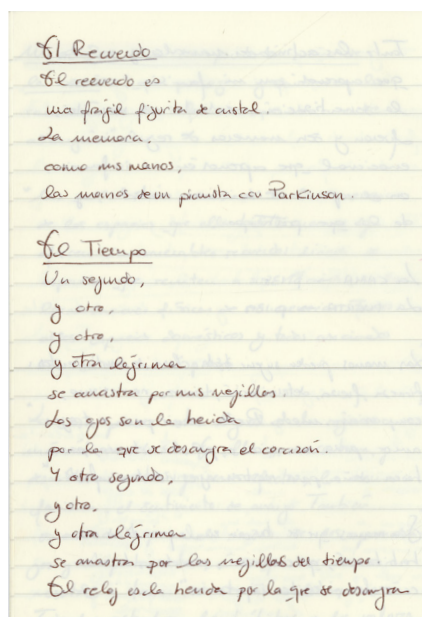 El Recuerdo
El recuerdo es
una frágil figurita de cristal.
La memoria,
como mis manos,
las manos de un pianista con Parkinson.
El Tiempo
Un segundo,
y otro,
y otro,
y otra lágrima
se arrastra por mis mejillas.
Los ojos son la herida
por la que se desangra el corazón.
Y otro segundo,
y otro,
y otra lágrima
se arrastra por las mejillas del tiempo.
El reloj es la herida por la que se desangra